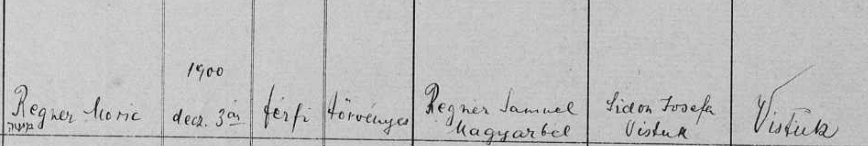 1900
Regner Moric
decz. 3án
férfi
törvényes
Regner Samuel
Magyarbél
Sidon Josefa
Vistuk
Vistuk